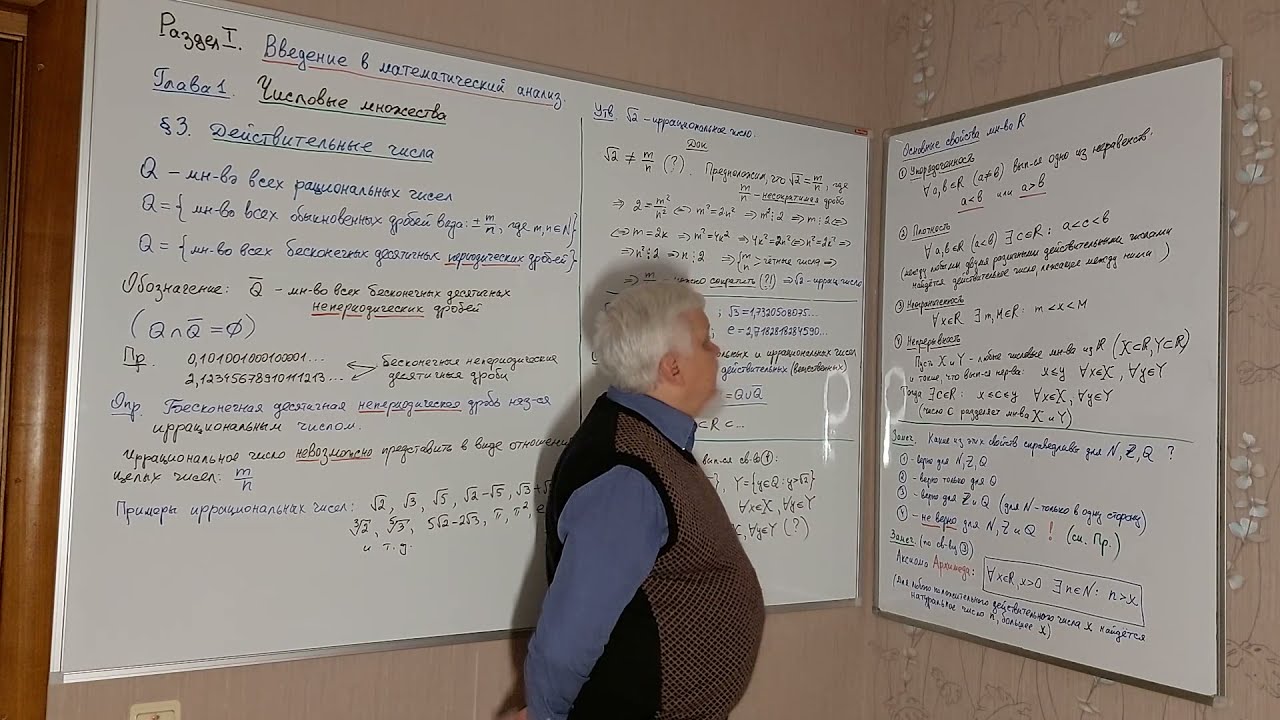 Раздел I. Введение в математический анализ.
Глава 1. Числовые множества
§3. Действительные числа
Q – мн-во всех рациональных чисел
Q = { мн-во всех обыкновенных дробей вида: ± m/n, где m, n ∈ N }
Q = { мн-во всех бесконечных десятичных периодических дробей }
Обозначение: Q̅ – мн-во всех бесконечных десятичных
непериодических дробей
( Q ∩ Q̅ = ∅ )
Пр. 0,101001000100001...
2,1234567891011 1213...
Бесконечная непериодические
десятичные дроби
Опр. Бесконечная десятичная непериодическая дробь наз-ся
иррациональным числом.
Иррациональное число невозможно представить в виде отношения
целых чисел: m/n
Примеры иррациональных чисел: √2, √3, √5, √2-√5, √3+√
∛2, 5√2-2√3, π, π², e
и т.д.
Утв. √2 – иррациональное число.
Док
√2 ≠ m/n (?). Предположим, что √2 = m/n, где
m/n – несократимая дробь
⇒ 2 = m²/n² ⇔ m² = 2n² ⇒ m² ⋮ 2 ⇒ m ⋮ 2 ⇔
⇔ m = 2k ⇒ m² = 4k² ⇒ 4k² = 2n² ⇔ n² = 2k² ⇒
⇒ n² ⋮ 2 ⇒ n ⋮ 2 ⇒ { m n – чётные числа ⇒
⇒ m можно сократить (?!) ⇒ √2 – иррац. число
; √3 = 1,7320508075...
; e = 2,7182818284590...
и иррациональных чисел
действительных (вещественных)
= Q ∪ Q̅
R ⊂ ...
вып-ся св-во ④:
}, Y = {y ∈ Q : y > √2}
∀x ∈ X, ∀y ∈ Y
X, ∀y ∈ Y (?)
Основные свойства мн-ва R
① Упорядоченность
∀ a, b ∈ R (a ≠ b) вып-ся одно из неравенств:
a < b или a > b
② Плотность
∀ a, b ∈ R (a < b) ∃ c ∈ R : a < c < b
(между любыми двумя различными действительными числами
найдётся действительное число, лежащее между ними)
③ Неограниченность
∀ x ∈ R ∃ m, M ∈ R : m < x < M
④ Непрерывность
Пусть X и Y – любые числовые мн-ва из R (X ⊂ R, Y ⊂ R)
и такие, что вып-ся нер-ва: x ≤ y ∀x ∈ X, ∀y ∈ Y
Тогда ∃ c ∈ R : x ≤ c ≤ y ∀x ∈ X, ∀y ∈ Y
(число c разделяет мн-ва X и Y)
Замеч. Какие из этих свойств справедливы для N, Z, Q ?
① – верно для N, Z, Q
② – верно только для Q
③ – верно для Z и Q (для N – только в одну сторону)
④ – не верно для N, Z и Q ! (см. Пр.)
Замеч. (по св-ву ③)
Аксиома Архимеда: ∀ x ∈ R, x > 0 ∃ n ∈ N : n > x
(для любого положительного действительного числа x найдётся
натуральное число n, большее x)